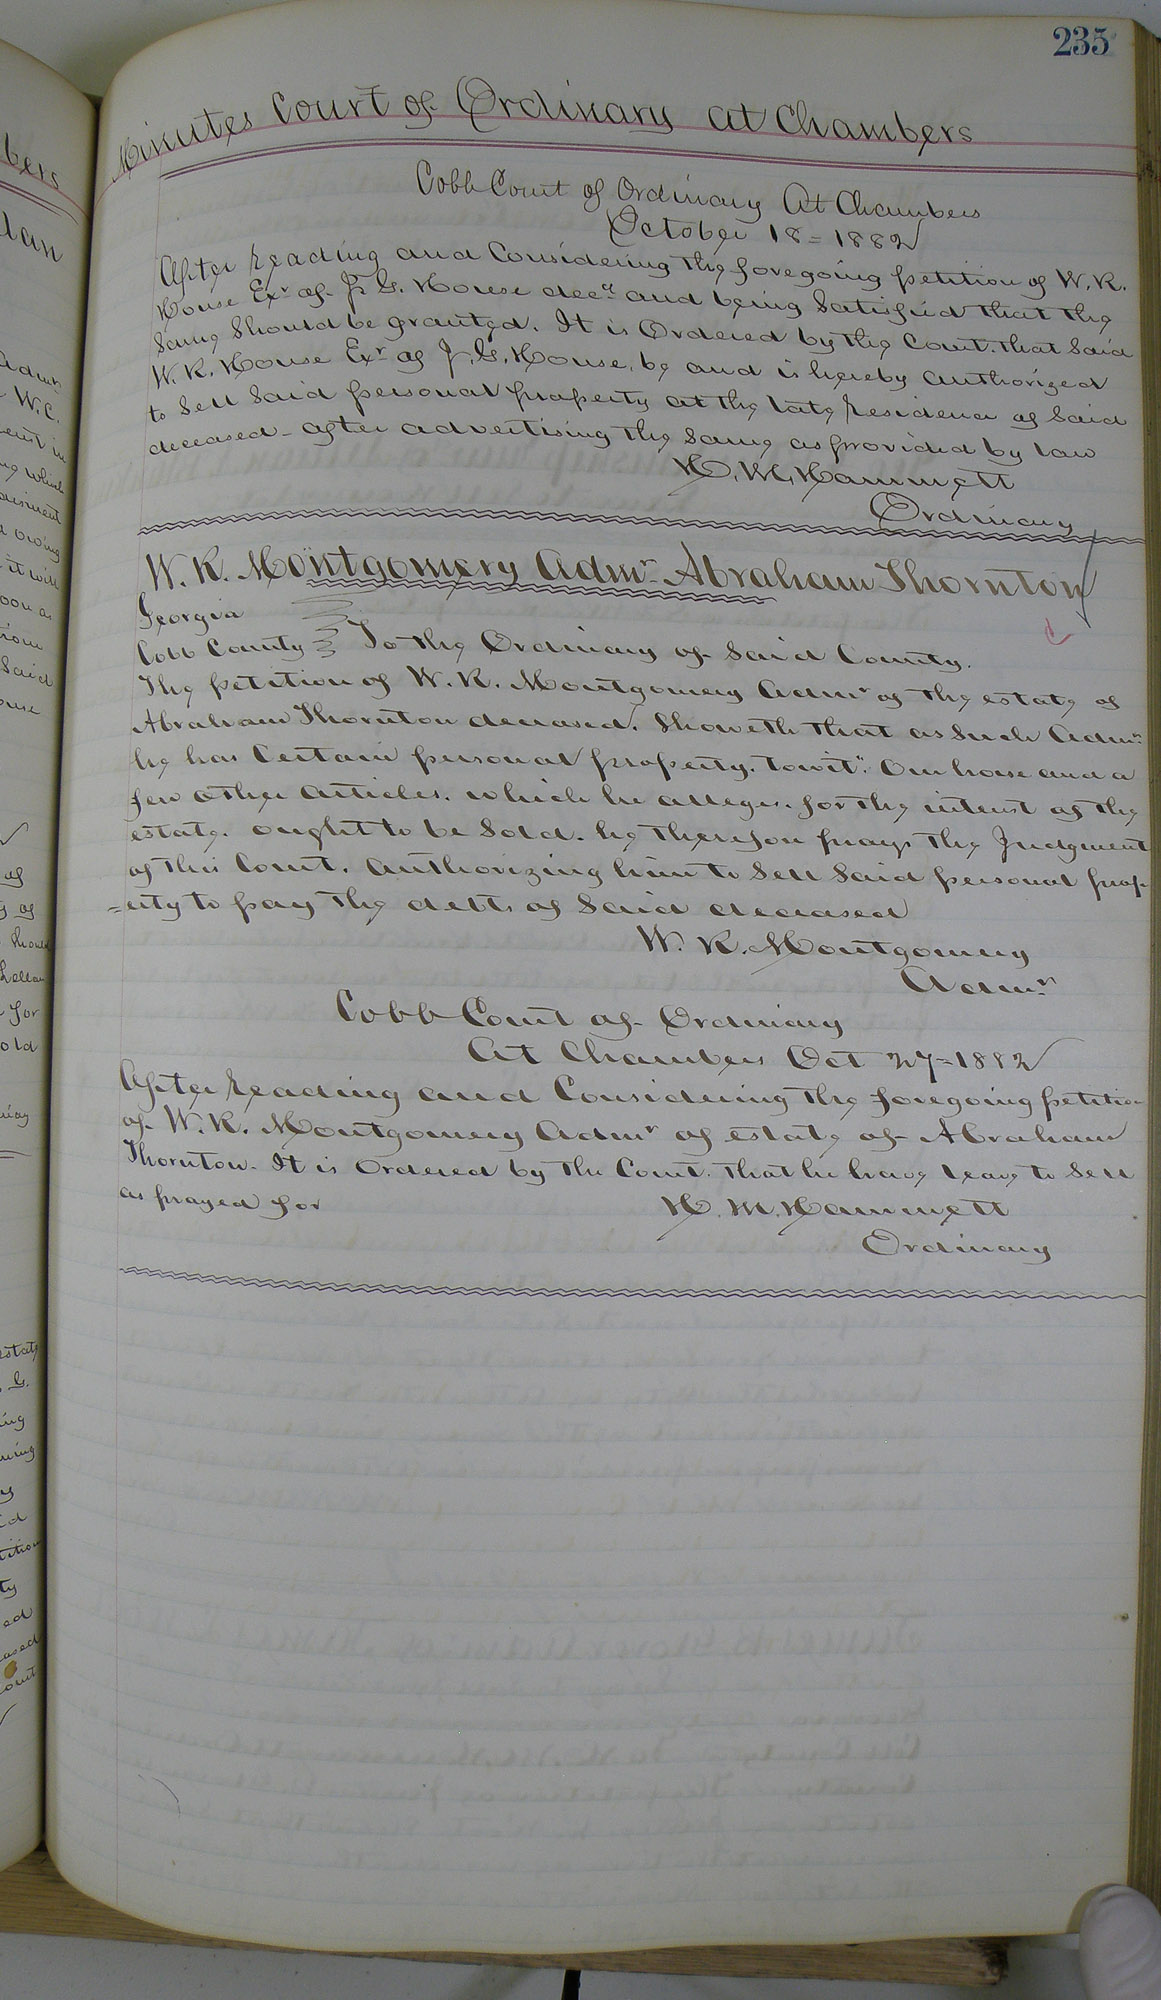 235
Minutes Court of Ordinary at Chambers
Cobb Court of Ordinary At Chambers
October 18=1882
After reading and Considering the foregoing petition of W.R.
House Exr of J. G. House decd and being Satisfied that the
Same Should be granted. It is Ordered by the Court. that Said
W. R. House Exr of J. G. House, be and is hereby authorized
to Sell Said personal property at the late residence of Said
deceased - after advertising the Same as provided by law
H. M. Hammett
Ordinary
W. R. Montgomery Admr Abraham Thornton
Georgia
Cobb County To the Ordinary of Said County.
The petition of W. R. Montgomery Admr of the estate of
Abraham Thornton deceased. Showeth that as Such Admr
he has Certain personal property. towit: One horse and a
few other articles. which he alleges. for the interest of the
estate. ought to be Sold. he therefore prays the Judgment
of this Court. authorizing him to Sell Said personal prop-
=erty to pay the debts of Said deceased
W. R. Montgomery
Admr
Cobb Court of Ordinary
At Chambers Oct 27=1882
After reading and Considering the foregoing petition
of W. R. Montgomery Admr of estate of Abraham
Thornton. It is Ordered by the Court. that he have leave to Sell
as prayed for H. M. Hammett
Ordinary